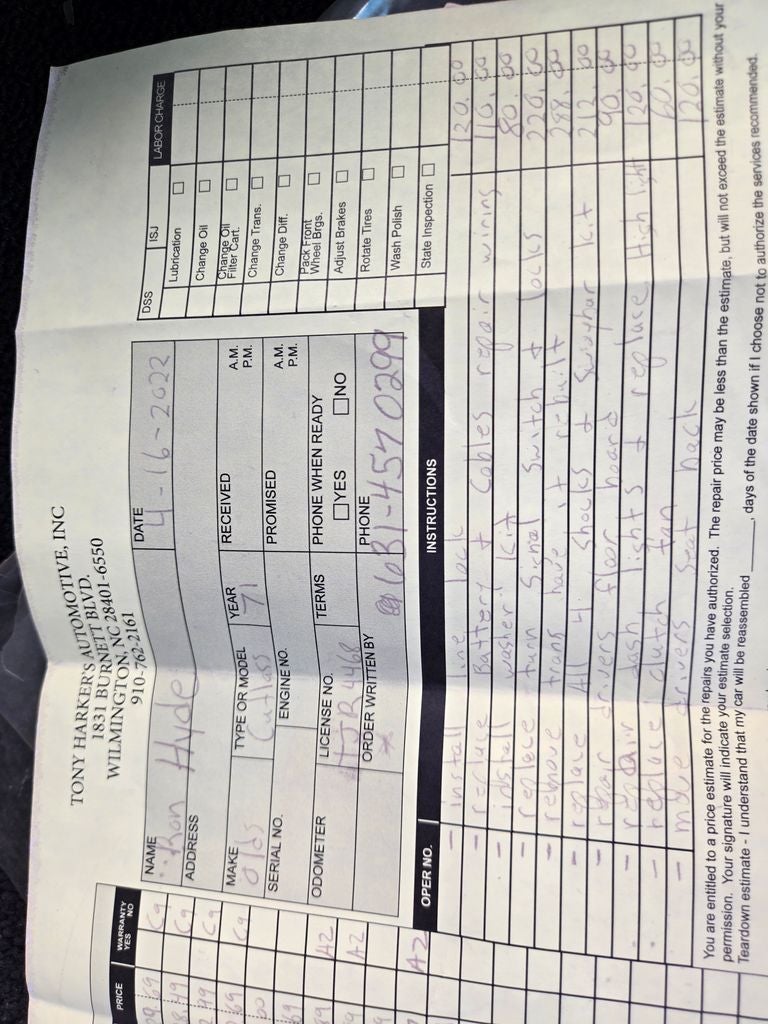 TONY HARKER'S AUTOMOTIVE, INC
1831 BURNETT BLVD.
WILMINGTON, NC 28401-6550
910-762-2161
NAME Ron Hyde
DATE 4-16-2022
ADDRESS
MAKE Olds
TYPE OR MODEL Cutlass
YEAR 71
RECEIVED A.M. P.M.
SERIAL NO.
ENGINE NO.
PROMISED A.M. P.M.
ODOMETER
LICENSE NO.
TERMS
PHONE WHEN READY
YES NO
ORDER WRITTEN BY
PHONE
DSS ISJ LABOR CHARGE
Lubrication
Change Oil
Change Oil Filter Cart.
Change Trans.
Change Diff.
Pack Front Wheel Brgs.
Adjust Brakes
Rotate Tires
Wash Polish
State Inspection
PRICE WARRANTY YES NO
OPER NO. INSTRUCTIONS
- install line lock 120.00
- replace Battery + Cables repair wiring 110.00
- install washer Kit 80.00
- replace turn Signal Switch + locks 220.00
- remove trans have it rebuilt 288.00
- replace All 4 Shocks + Kit 212.00
- repair drivers floor board 90.00
- repair dash lights + replace High light 120.00
- replace clutch fan 60.00
- move drivers Seat back 120.00
You are entitled to a price estimate for the repairs you have authorized. The repair price may be less than the estimate, but will not exceed the estimate without your
permission. Your signature will indicate your estimate selection.
Teardown estimate - I understand that my car will be reassembled ______, days of the date shown if I choose not to authorize the services recommended.